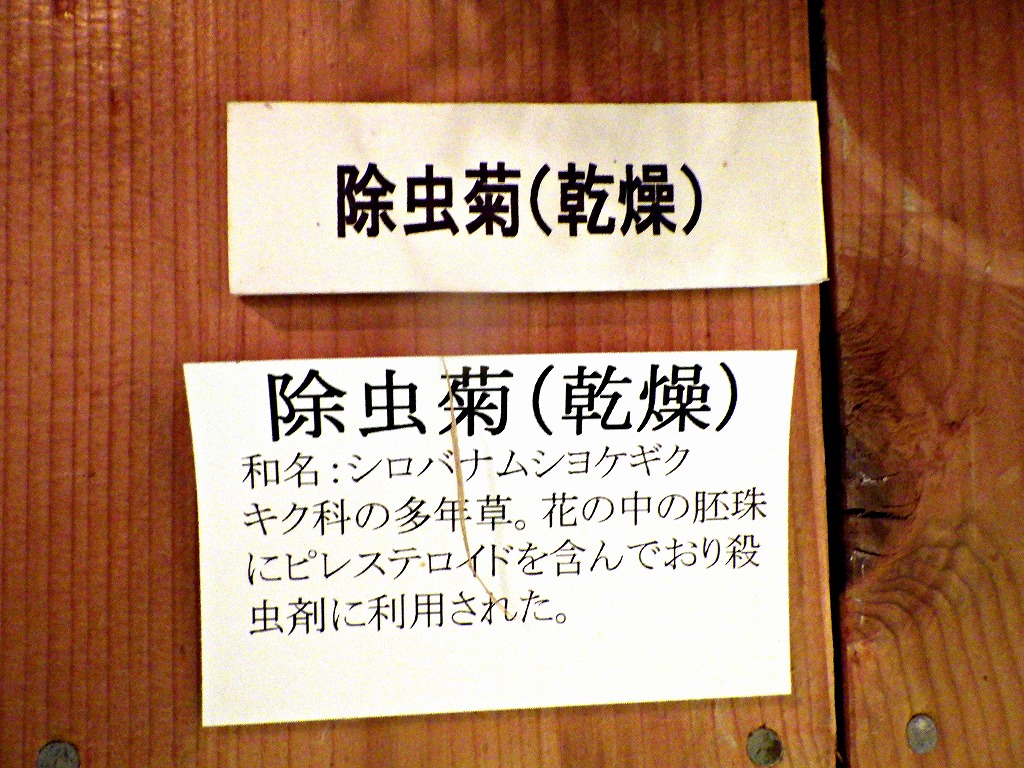 除虫菊(乾燥)
除虫菊(乾燥)
和名:シロバナムシヨケギク
キク科の多年草。花の中の胚珠
にピレステロイドを含んでおり殺
虫剤に利用された。